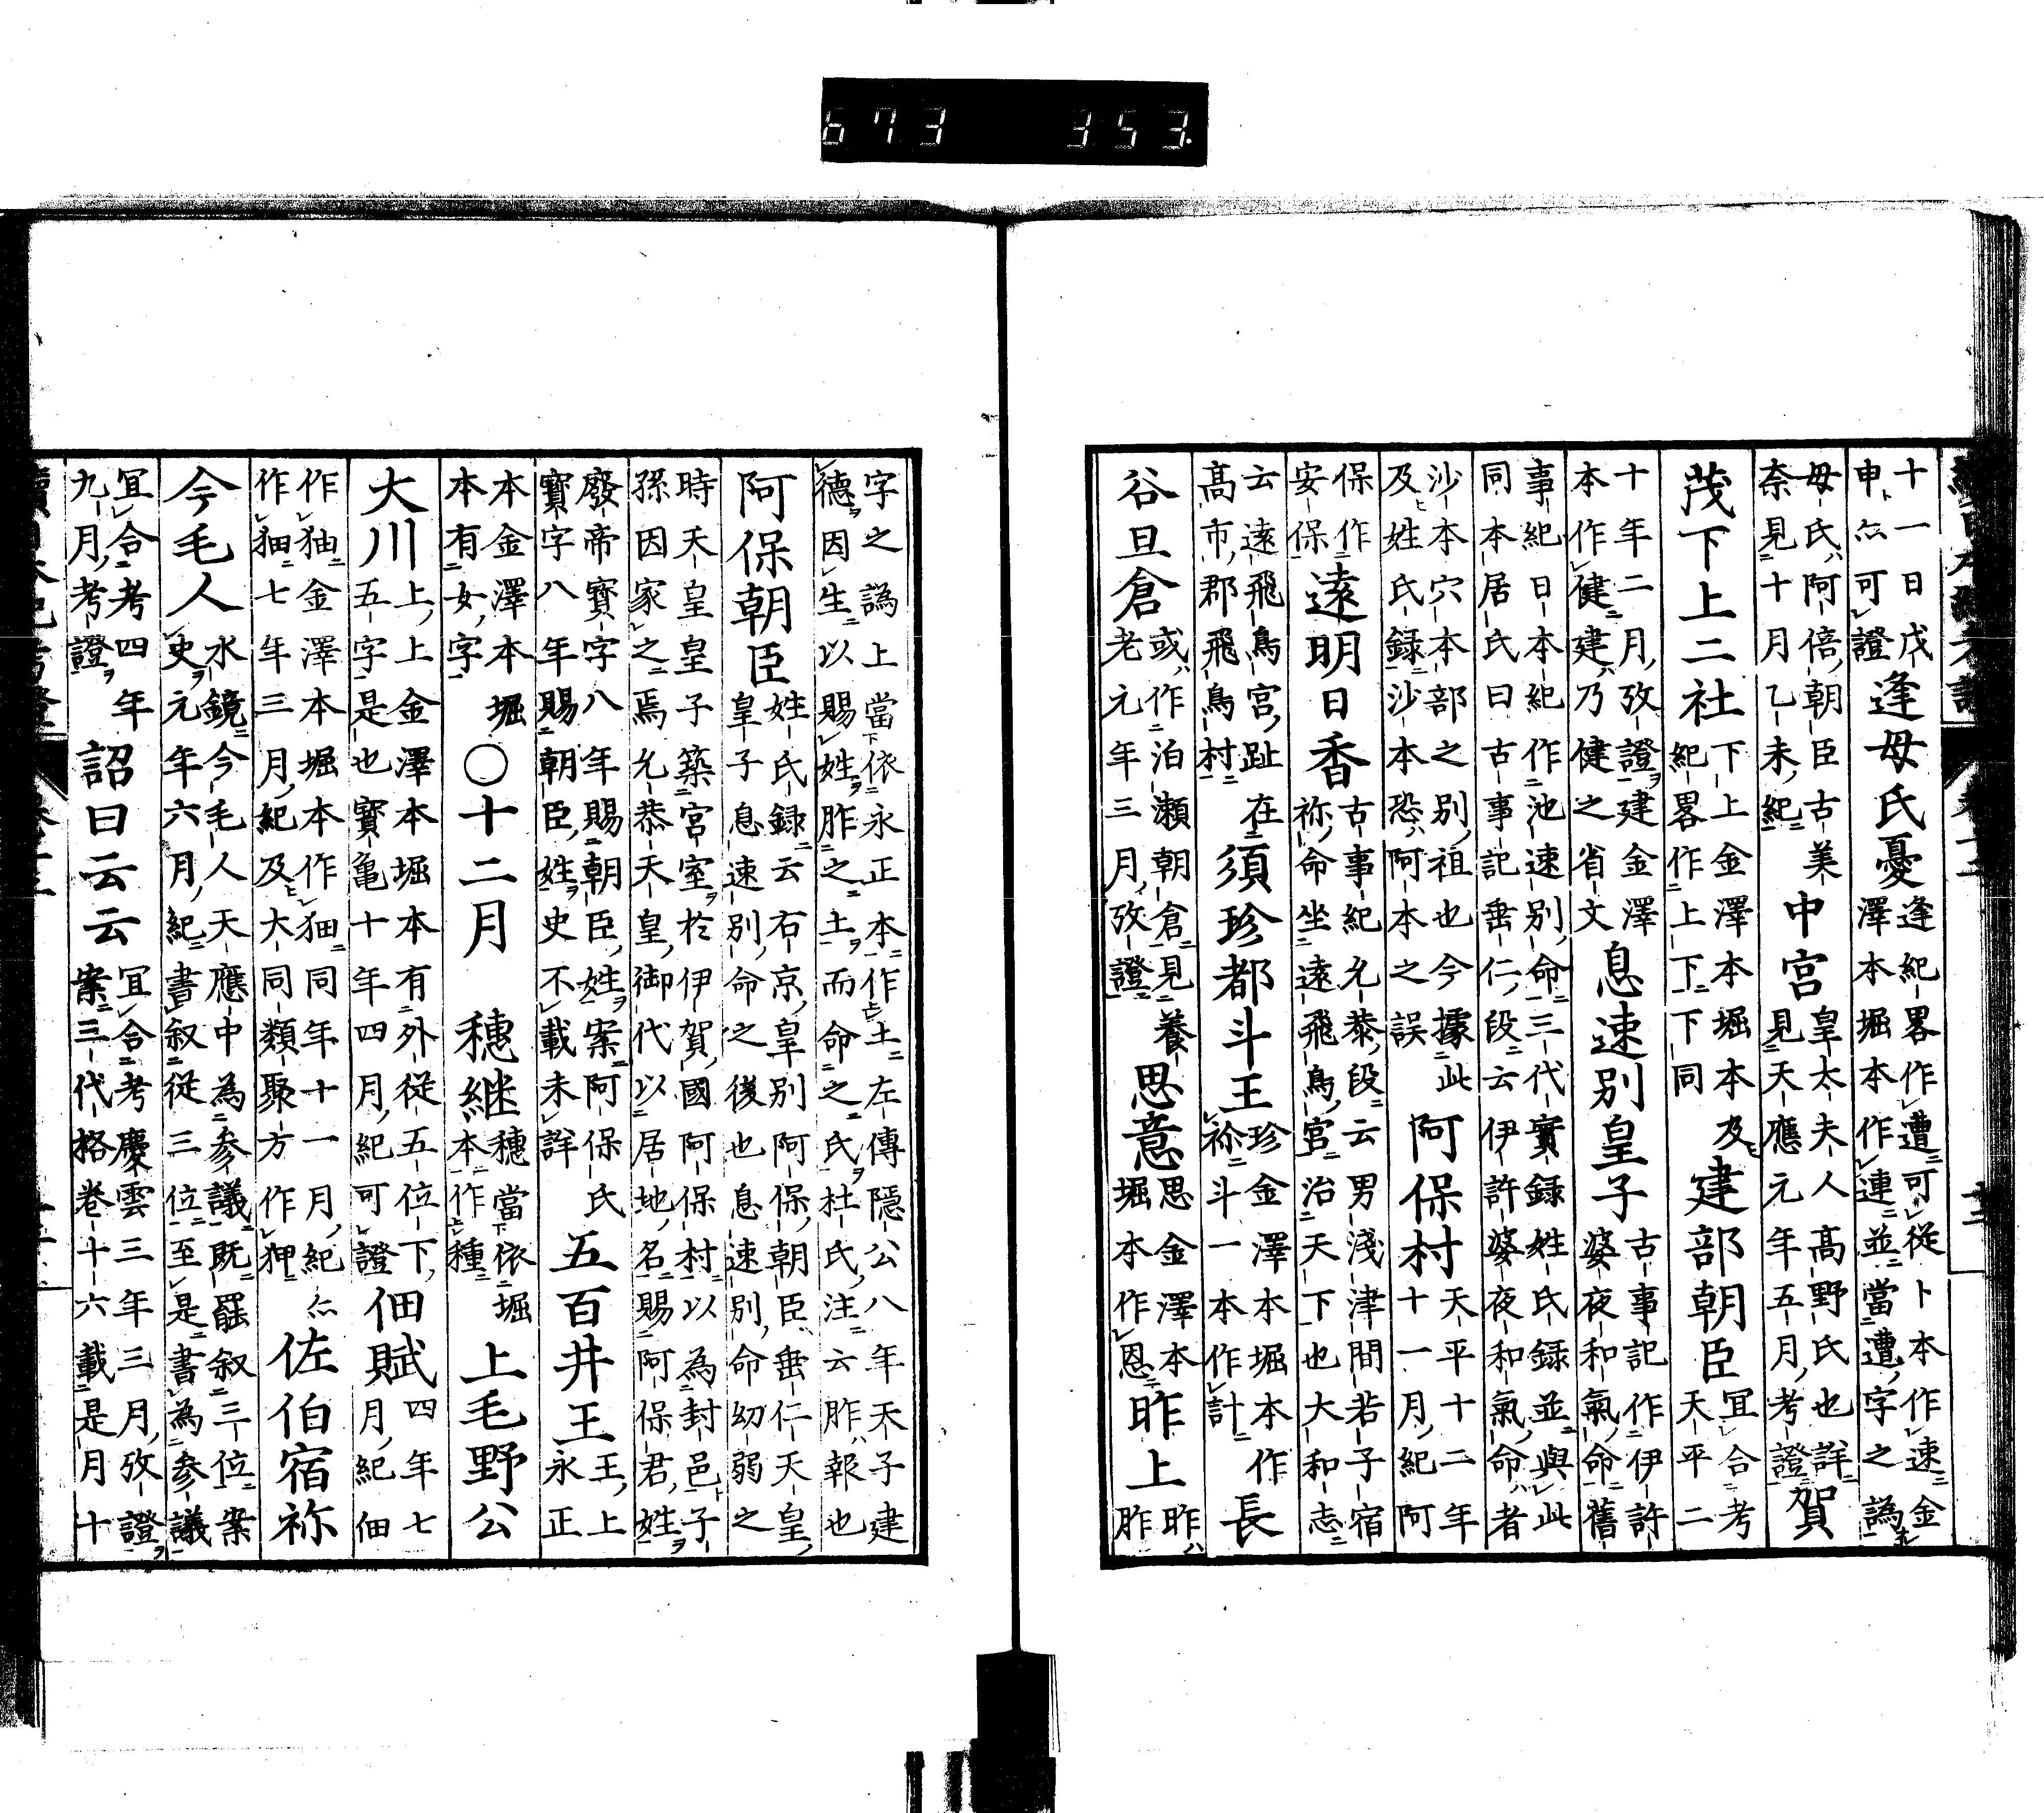 十一日戊申亦可證逢母氏憂逢紀畧作遭可從卜本作速金澤本堀本作連並當遭字之譌
母氏阿倍朝臣古美奈見十月乙未紀中宮皇太夫人高野氏也詳見天應元年五月考證賀
茂下上二社下上金澤本堀本及紀畧作上下下同建部朝臣宜合考天平二
十年二月攷證建金澤本作健建乃健之省文息速別皇子古事記作伊許婆夜和氣命舊
事紀日本紀作池速別命三代實録姓氏録並與此同本居氏曰古事記垂仁段云伊許婆夜和氣命者
沙本穴本部之別祖也今據此及姓氏録沙本恐阿本之誤阿保村天平十二年十一月紀阿
保作安保遠明日香古事紀允恭段云男淺津間若子宿祢命坐遠飛鳥宮治天下也大和志
云遠飛鳥宮趾在高市郡飛鳥村須珍都斗王珍金澤本堀本作祢斗一本作計長
谷旦倉或作泊瀬朝倉見養老元年三月攷證思意思金澤本堀本作恩昨上昨胙
字之譌上當依永正本作土左傳隱公八年天子建德因生以賜姓胙之土而命之氏杜氏注云胙報也
阿保朝臣姓氏録云右京皇別阿保朝臣垂仁天皇皇子息速別命之後也息速別命幼弱之
時天皇皇子築宮室於伊賀國阿保村以為封邑子孫因家之焉允恭天皇御代以居地名賜阿保君姓
廢帝寶字八年賜朝臣姓案阿保氏寶字八年賜朝臣姓史不載未詳五百井王王上永正
本金澤本堀本有女字〇十二月 穗継穗當依堀本作種上毛野公
大川上上金澤本堀本有外従五位下五字是也寶亀十年四月紀可證佃賦四年七月紀佃
金澤本堀本作同年十一月紀亦作七年三月紀及大同類聚方作狎佐伯宿祢
今毛人水鏡今毛人天應中為参議既罷叙三位案史元年六月紀書叙従三位至是書為参議
宜合考四年九月考證詔曰云云宜合考慶雲三年三月攷證案三代格卷十六載是月十
673 353